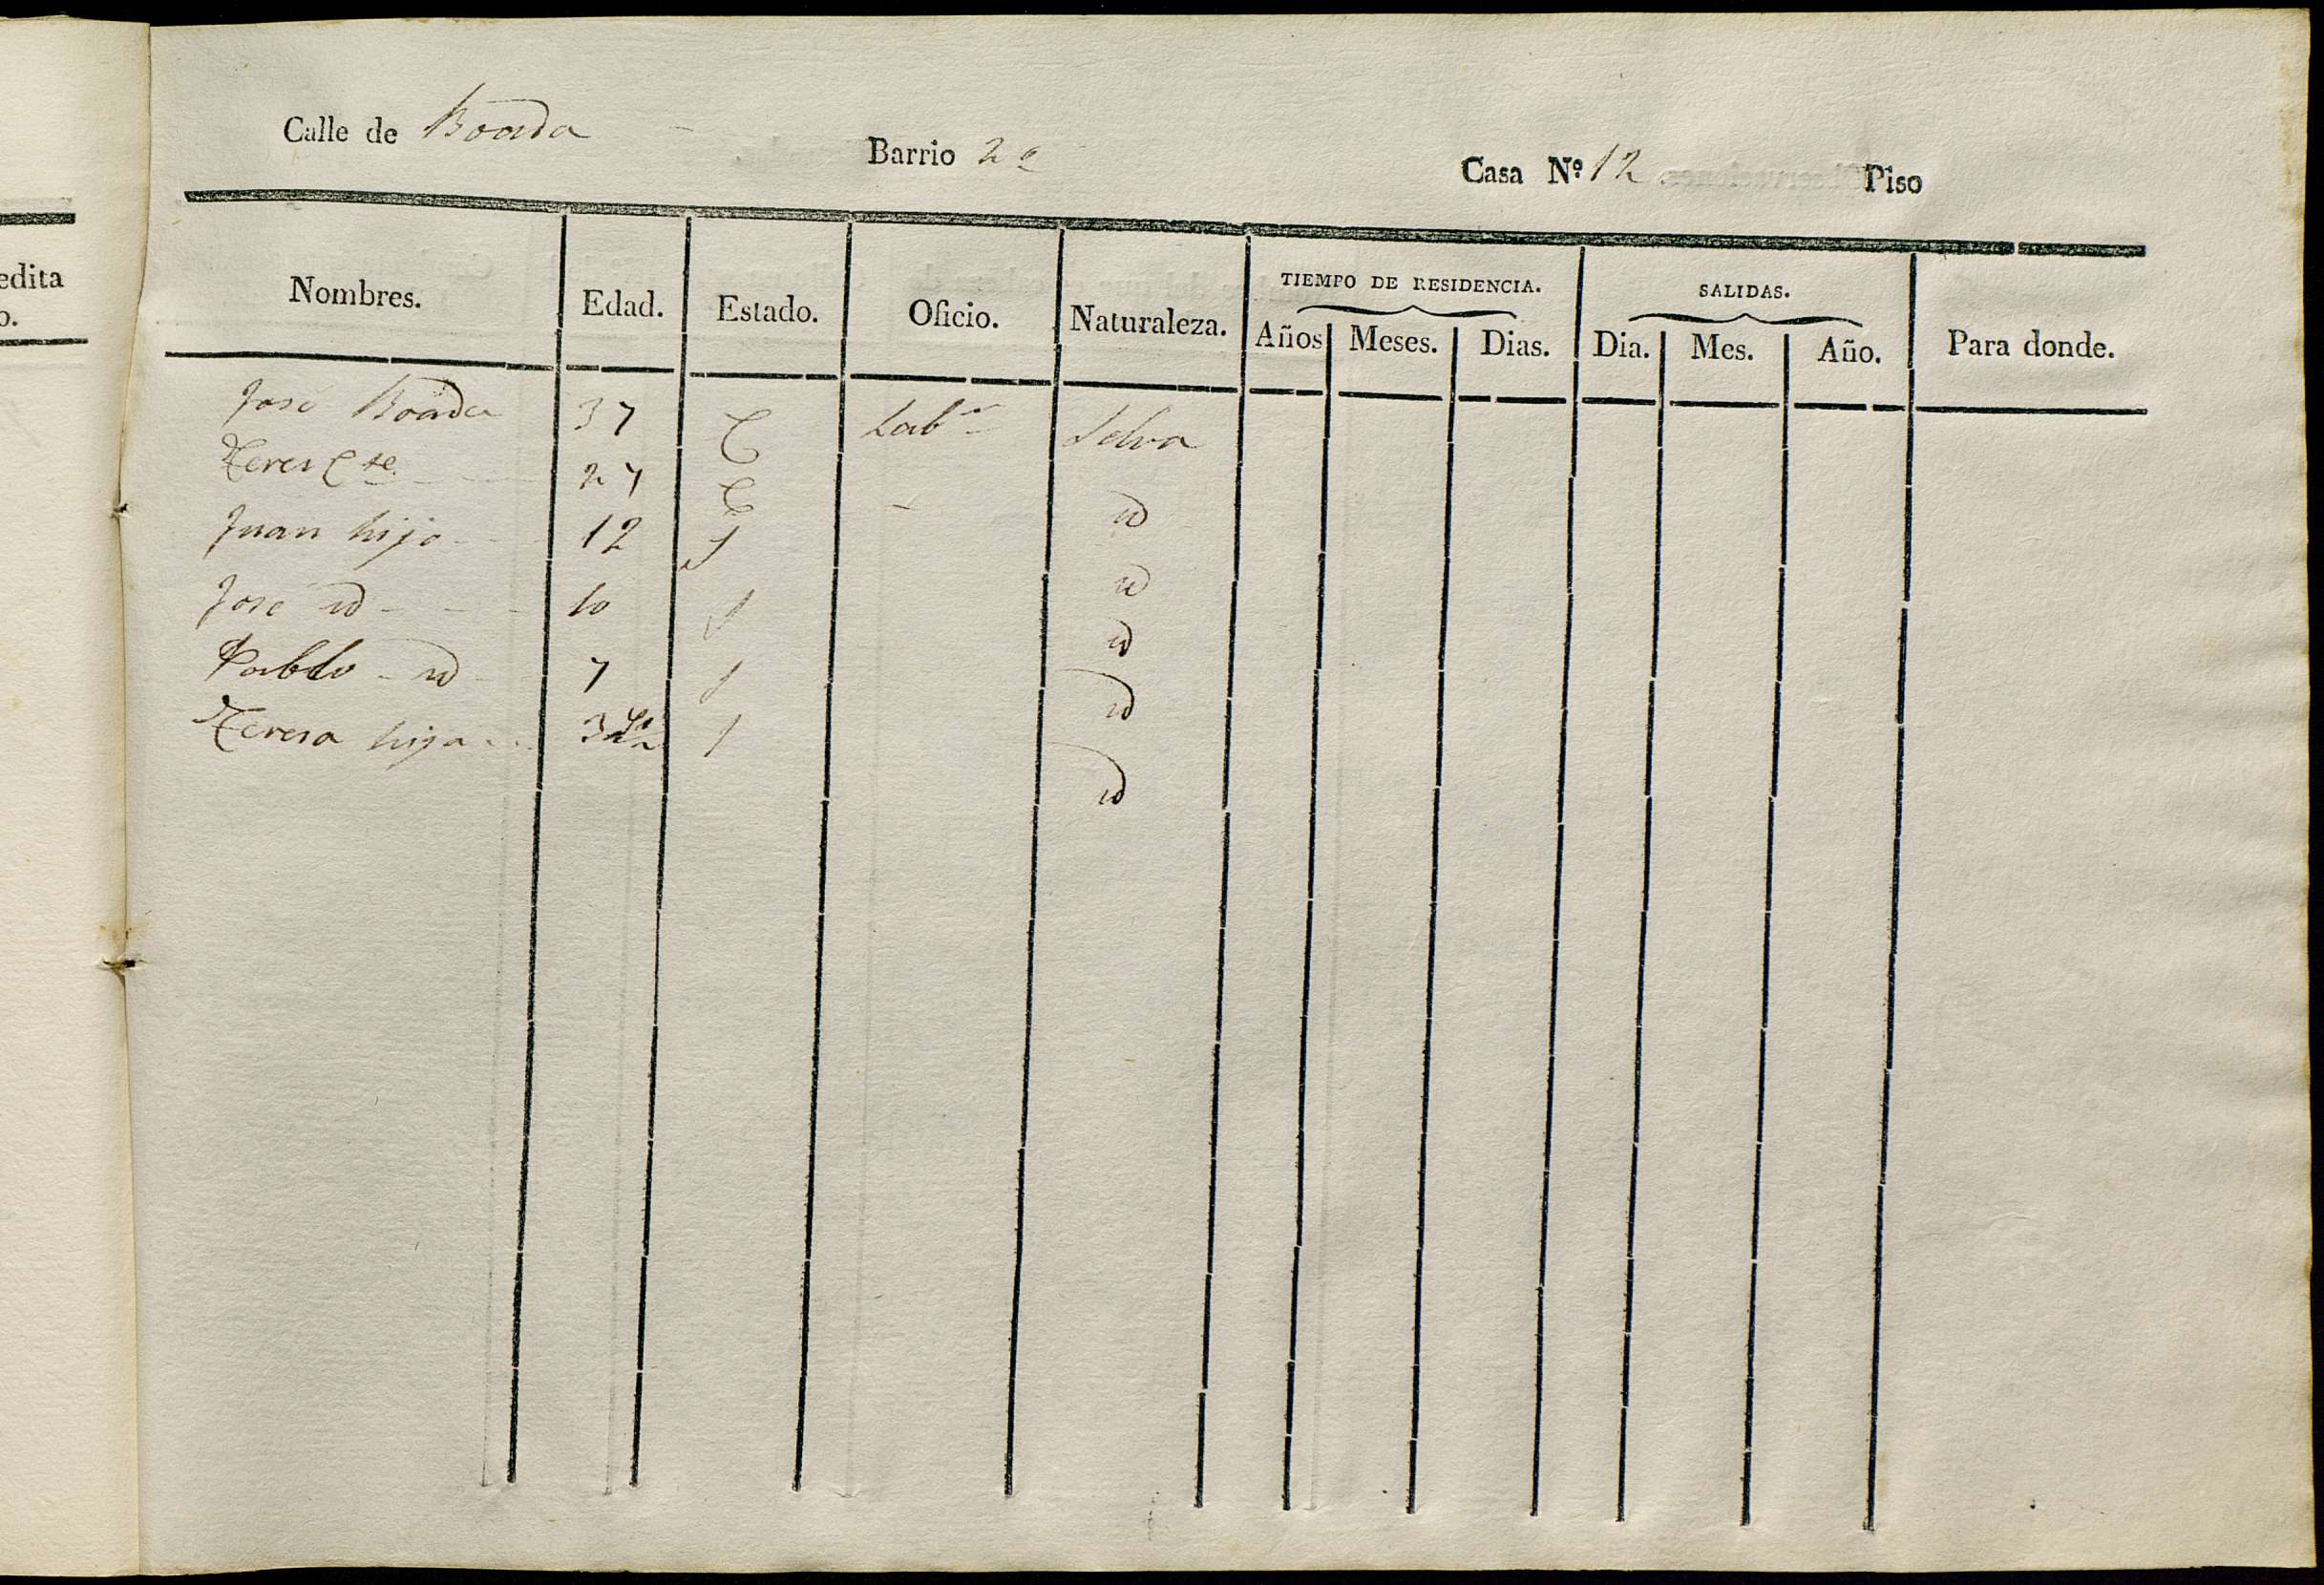 edita
o.
Calle de Boada Barrio 2º Casa Nº 12 Piso
Nombres. Edad. Estado. Oficio. Naturaleza. TIEMPO DE RESIDENCIA. SALIDAS. Para donde.
Años Meses. Dias. Dia. Mes. Año.
José Boada 37 C Labr Selva
Teres Cte 27 C id
Juan hijo 12 S id
José id 10 S id
Pablo id 7 S id
Teresa hija 3 S id